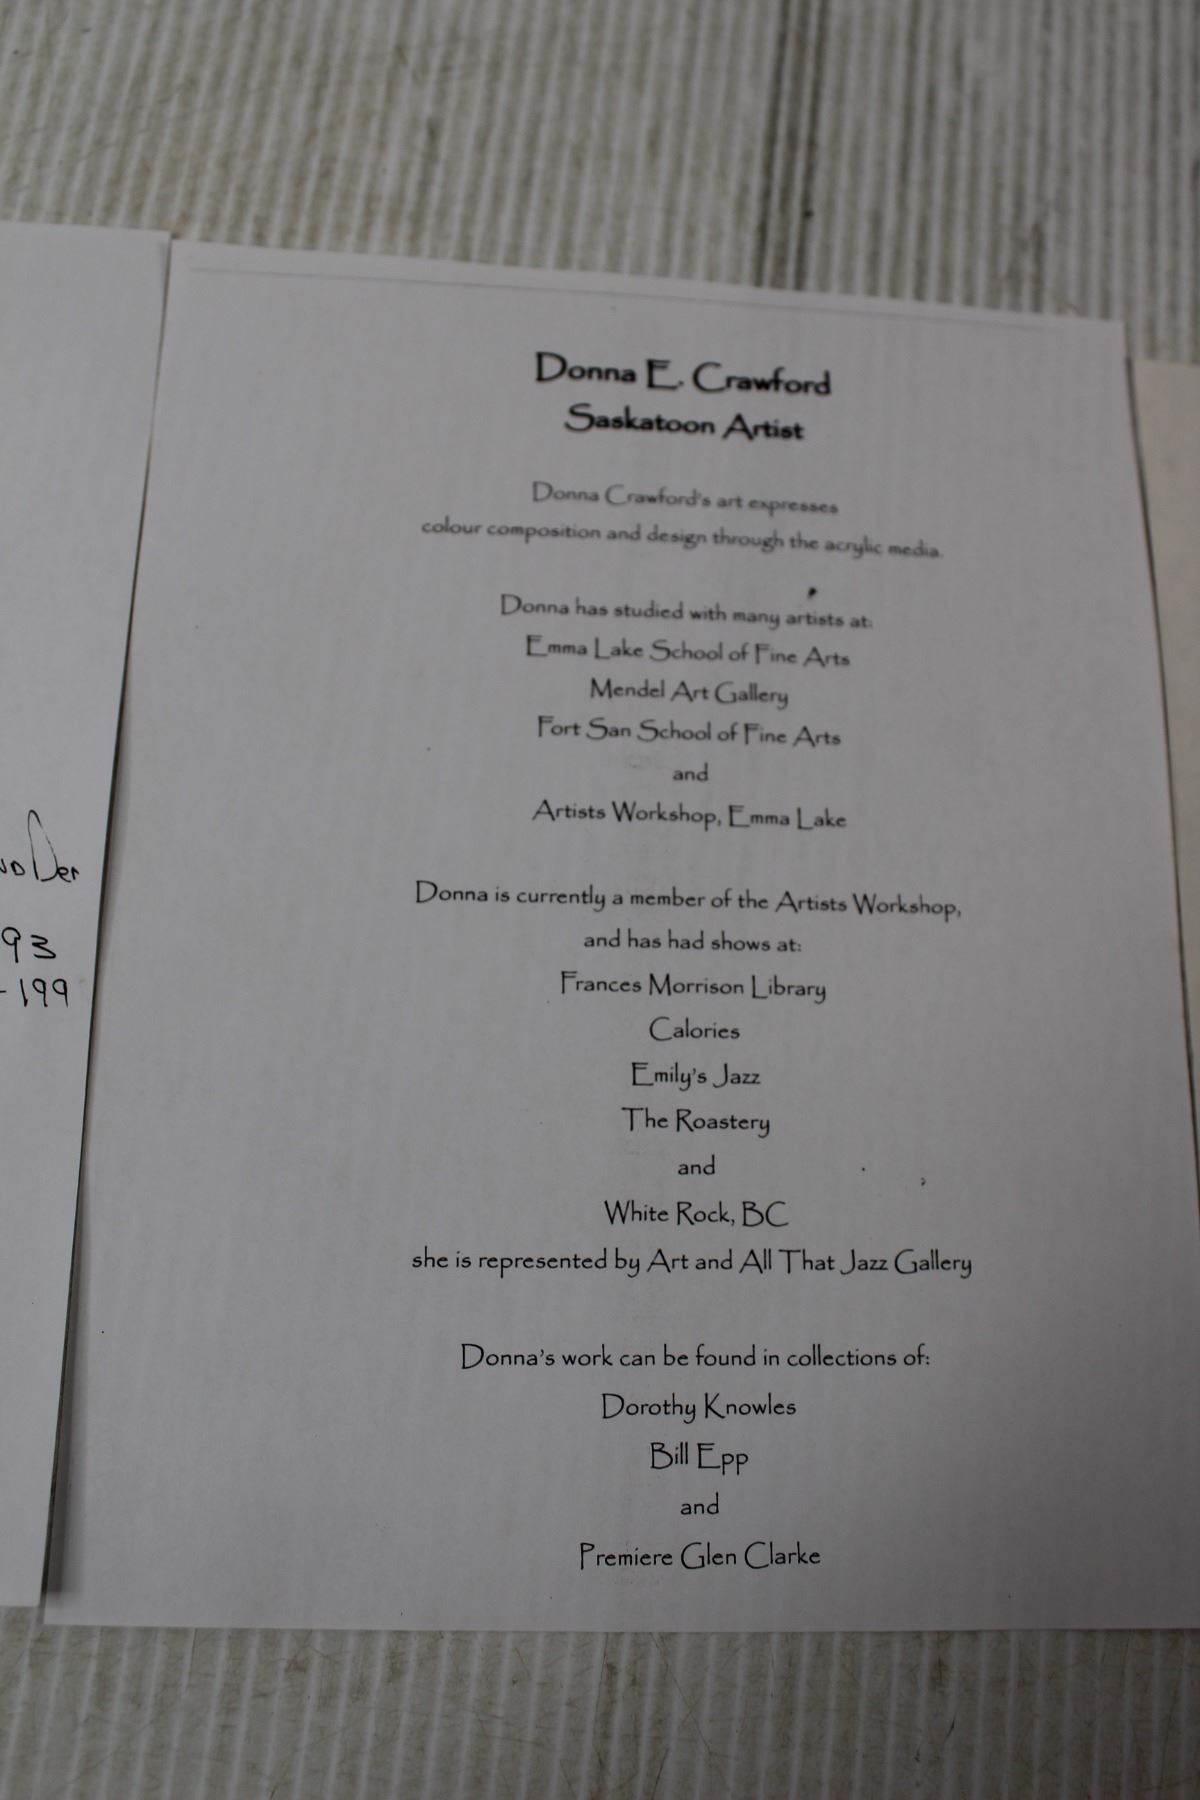 Donna E. Crawford
Saskatoon Artist
Donna Crawford's art expresses
colour composition and design through the acrylic media.
Donna has studied with many artists at:
Emma Lake School of Fine Arts
Mendel Art Gallery
Fort San School of Fine Arts
and
Artists Workshop, Emma Lake
Donna is currently a member of the Artists Workshop,
and has had shows at:
Frances Morrison Library
Calories
Emily's Jazz
The Roastery
and
White Rock, BC
she is represented by Art and All That Jazz Gallery
Donna's work can be found in collections of:
Dorothy Knowles
Bill Epp
and
Premiere Glen Clarke
93
-199